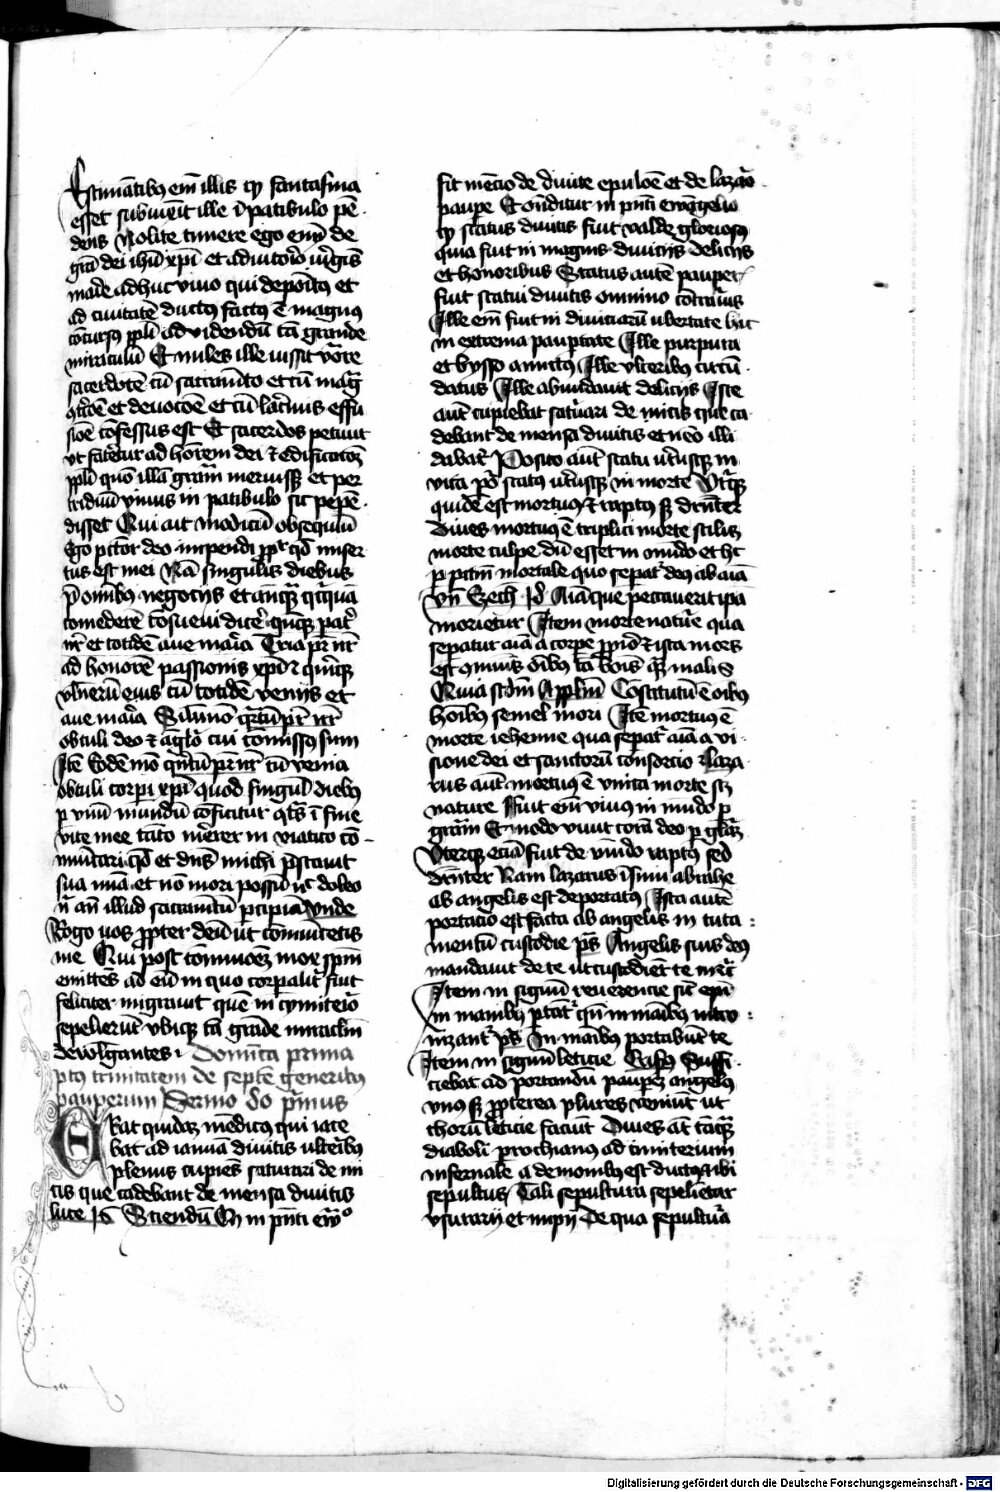 Estimātibꝰ em̄ illis qꝫ fantasma
esset subuēit ille ī patibulo pē
dens Nolite timere ego enī de
gr̄a dei ihū xp̄i et adiutoꝛio v̓gīs
mar̄ie adhuc viuo qui depoītꝰ et
ad ciuitatē ductꝰ factꝰ ē magnꝰ
cōcursꝰ ppl̄i ad videndū tā grande
miraculū Et miles ille iussit vocare
sacerdotē cū sacram̄to et cū maḡ
ꝯtʳicōe et deuocōe et cū lac̓mis effu
sioē cōfessus est Et sacerdos petiuit
vt fateret̄ ad honoꝛem dei ⁊ edificacōꝫ
ppl̄i quō illā gram̄ meruissꝫ et per
triduū viuus in patibulo sic pepē
disset Qui ait Modicū obsequiū
Ego pctoꝛ deo impendi ppt̓ qd̓ miser
tus est mei Nā singulis diebus
p̄ omībꝰ negocijs et anteqꝫ quicqua
comederē cōsueui dicē quīqꝫ pat̓
nr̄ et totidē aue maria Tria pr̄ nr̄
ad honoꝛē passionis xp̄i ⁊ quīqꝫ
vulnerū eius cū totidē venijs et
aue maria Similir̄ q̄rtū pr̄ nr̄
obtuli deo ⁊ angl̓o cui cōmissꝰ sum
Itē Eodē mō quītū pr̄ nr̄ cū venia
obtuli coꝛpi xp̄i quod singul̓ diebꝰ
ꝑ vniū mundū cōficitur qtꝰ ī fine
vite mee tāto mērer in viatico cō
mūicari qd̓ et dn̄s michi p̄stauit
sua mīa et nō moꝛi possū nᶜ doleo
nͥ an̄ illud sacram̄tū p̄cipiā Vnde
Rogo vos ppter deū ut cōmūicetis
me Qui post cōmūicōeꝫ mox spm̄
emittēs ad eū in quo coꝛpalit̓ fuit
feliciter migrauit quē in cymiteio
sepelierūt vbiqꝫ tā grāde miraclm̄
deuolgantes · Domīca prima
post trinitatem de septē generibꝰ
pauperum Sermo do pʳmus
ERat quidaꝫ mēdicꝰ qui iace
bat ad ianuā diuitis ulceibꝰ
plenus cupiēs saturari de mi
cis que cadebant de mensa diuitis
luce 16 Sciendū Qꝫ in pn̄ti ew̄º
fit mēcio de diuite epuloē et de lazaʳo
paupe Et oñditur in pn̄ti ewāgelio
qꝫ status diuitis fuit valde gloꝛiosꝰ
quia fuit in magnis diuicijs delicijs
et honoꝛibus Status autē paupeꝝ
fuit statui diuitis omnino cōtrariꝰ
Ille em̄ fuit in diuiciarū vbertate hic
in extrema paupertate Ille purpura
et bysso amictꝰ Ille vlceribꝰ circū
datus Ille abundauit delicijs Iste
aut̄ cupiebat saturari de micis que ca
debant de mensa diuitis et nēo illi
dabat Posito aut̄ statu utʳiusqꝫ in
vita pꝫ status utʳiusqꝫ in moꝛte Vtʳqꝫ
quidē est moꝛtuꝰ ⁊ raptꝰ sꝫ drn̄ter
Diues moꝛtuꝰ ē triplici moꝛte scilicꝫ
moꝛte culpe dū esset in mūdo et hᶜ
ꝑ pctm̄ moꝛtale quo sepat̓ deꝰ ab aīa
Vn̄ Ezech 18 Aīa que peccauerit ipā
moꝛietur Item moꝛte nature qua
sepatur aīa a coꝛpe pꝛiō ⁊ ista moꝛs
est ꝯmuīs oībꝰ tā bonis qꝫ malis
Quia scdm̄ Appl̄m Cōstitutū ē oībꝰ
hoībꝰ semel moꝛi Itē moꝛtuꝰ ē
moꝛte iehenne qua sepat̓ aīa a vi
sione dei et sanctoꝛū consoꝛcio Laza
rus aut̄ moꝛtuꝰ ē vnica moꝛte scꝫ
nature Fuit em̄ viuꝰ in mūdo ꝑ
gram̄ Et modo viuit coꝛā deo ꝑ gloꝛiaꝫ
Vterqꝫ eciā fuit de mūdo raptꝰ sed
drn̄ter Nam lazarus ī sinu abrahe
ab angelis est depoꝛtatꝰ Ista autē
poꝛtacio est facta ab angelis in tuta
mentū custodie pꝰ Angelis suis deꝰ
mandauit de te ut custodiēt te ⁊cet̓
Item in signū reuerencie sic epī
in manibꝰ poꝛtāt̓ qn̄ in maībus intro
nizant̓ pꝰ In maībus poꝛtabūt te
Item in signū leticie Suffi
ciebat ad poꝛtandū pauperꝫ angelꝰ
vnꝰ sꝫ ppterea plures veniūt ut
choꝛū leticie faciāt Diues at̄ tāqꝫ
diaboli prochianꝰ ad cimiterium
infernale a demonibꝰ est ductꝰ ⁊ ibi
sepultus Tali sepultura sepelient̄
vsurarij et impij De qua sepultura
Digitalisierung gefördert durch die Deutsche Forschungsgemeinschaft - DFG